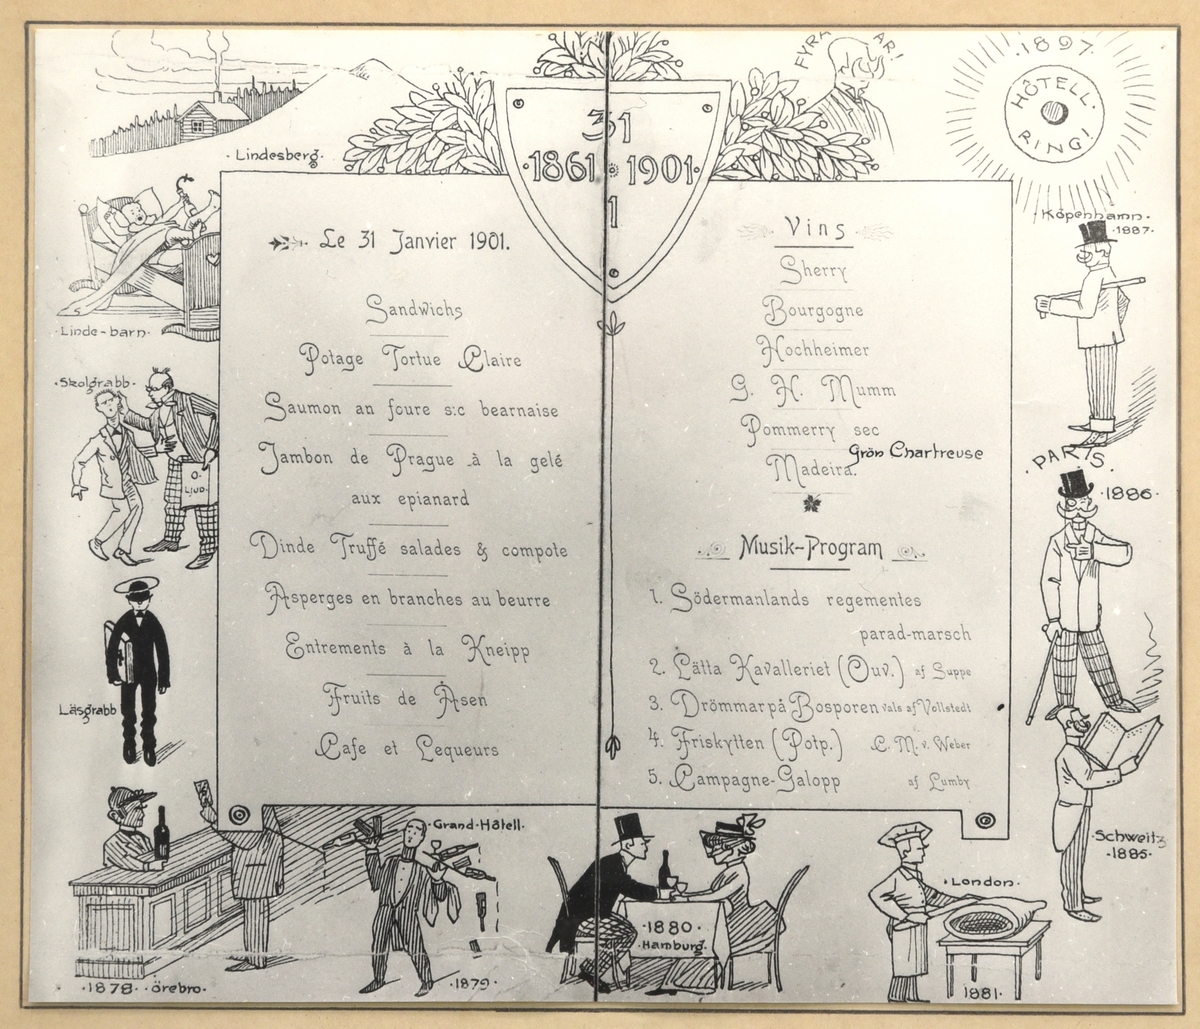 Lindesberg.
Linde-barn.
Skolgrabb.
O-
LJUD.
Läsgrabb
1878. örebro.
Grand-Hôtell.
1879.
1880
Hamburg.
London.
1881
Schweitz
1885.
PARIS.
1886
Köpenhamn.
1887.
1897
HÔTELL
RING!
FYRA
ÅR!
31
1861 1901
1
Le 31 Janvier 1901.
Sandwichs
Potage Tortue Claire
Saumon an foure s:c bearnaise
Jambon de Prague à la gelé
aux epianard
Dinde Truffé salades & compote
Asperges en branches au beurre
Entrements à la Kneipp
Fruits de Åsen
Cafe et Lequeurs
Vins
Sherry
Bourgogne
Hochheimer
G. H. Mumm
Pommerry sec
Grön Chartreuse
Madeira.
Musik-Program
1. Södermanlands regementes
parad-marsch
2. Lätta Kavalleriet (Ouv.) af Suppe
3. Drömmar på Bosporen vals af Vollstedt
4. Friskytten (Potp.) C. M. v. Weber
5. Campagne-Galopp af Lumby